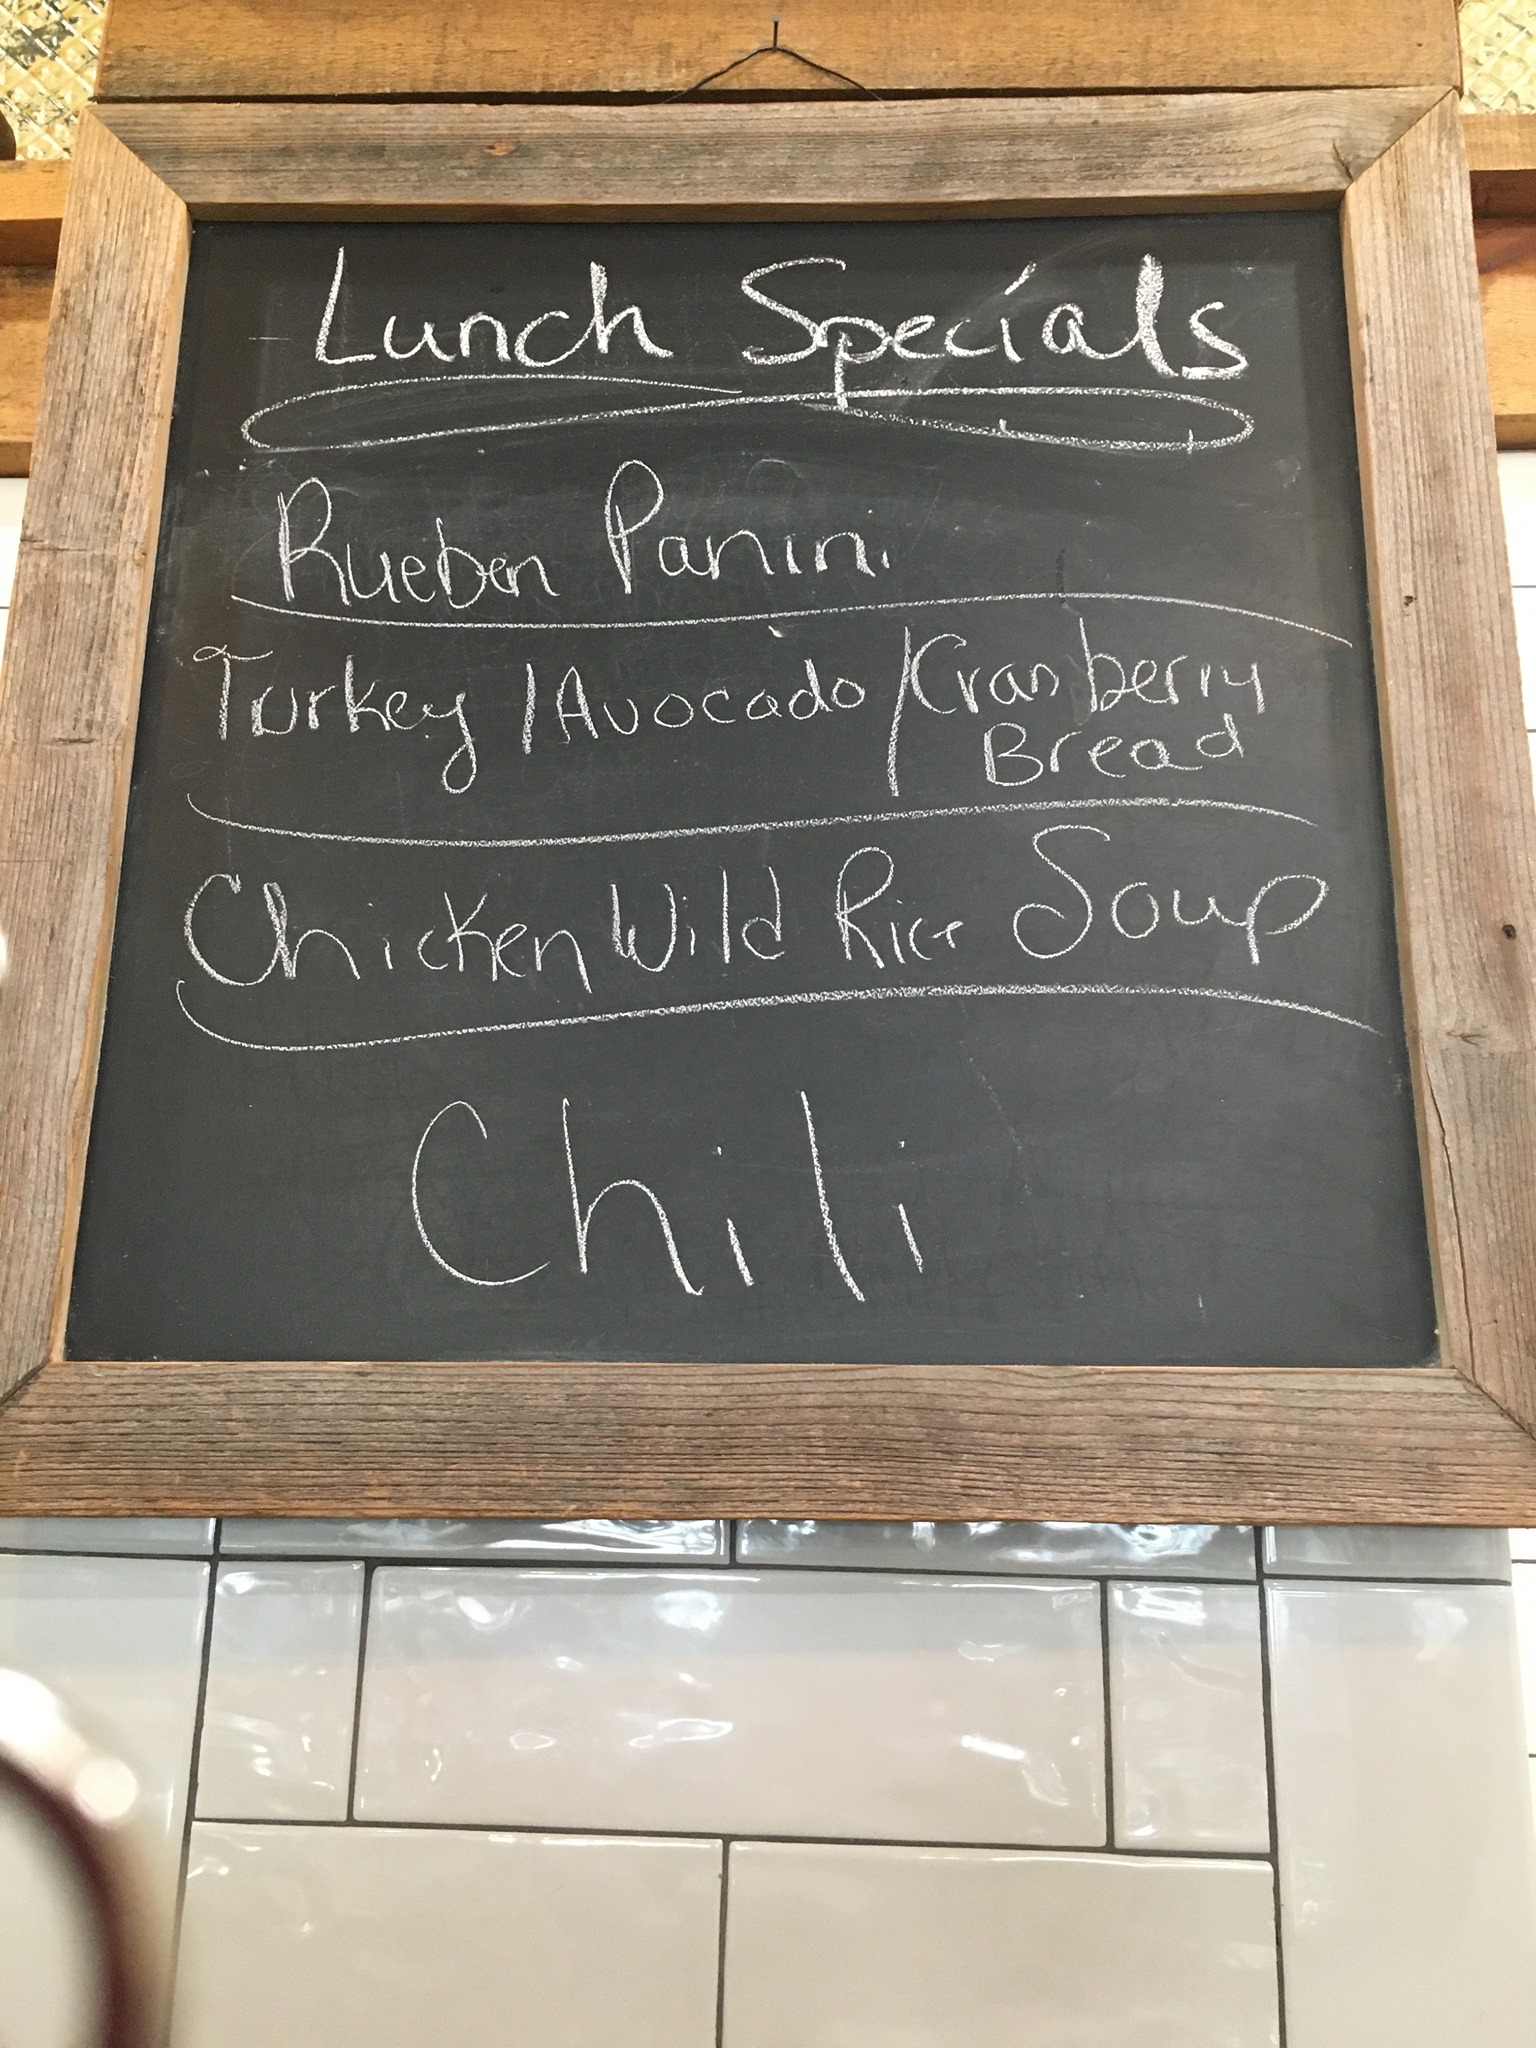 Lunch Specials
Rueben Panini
Turkey / Avocado / Cranberry
Bread
Chicken Wild Rice Soup
Chili